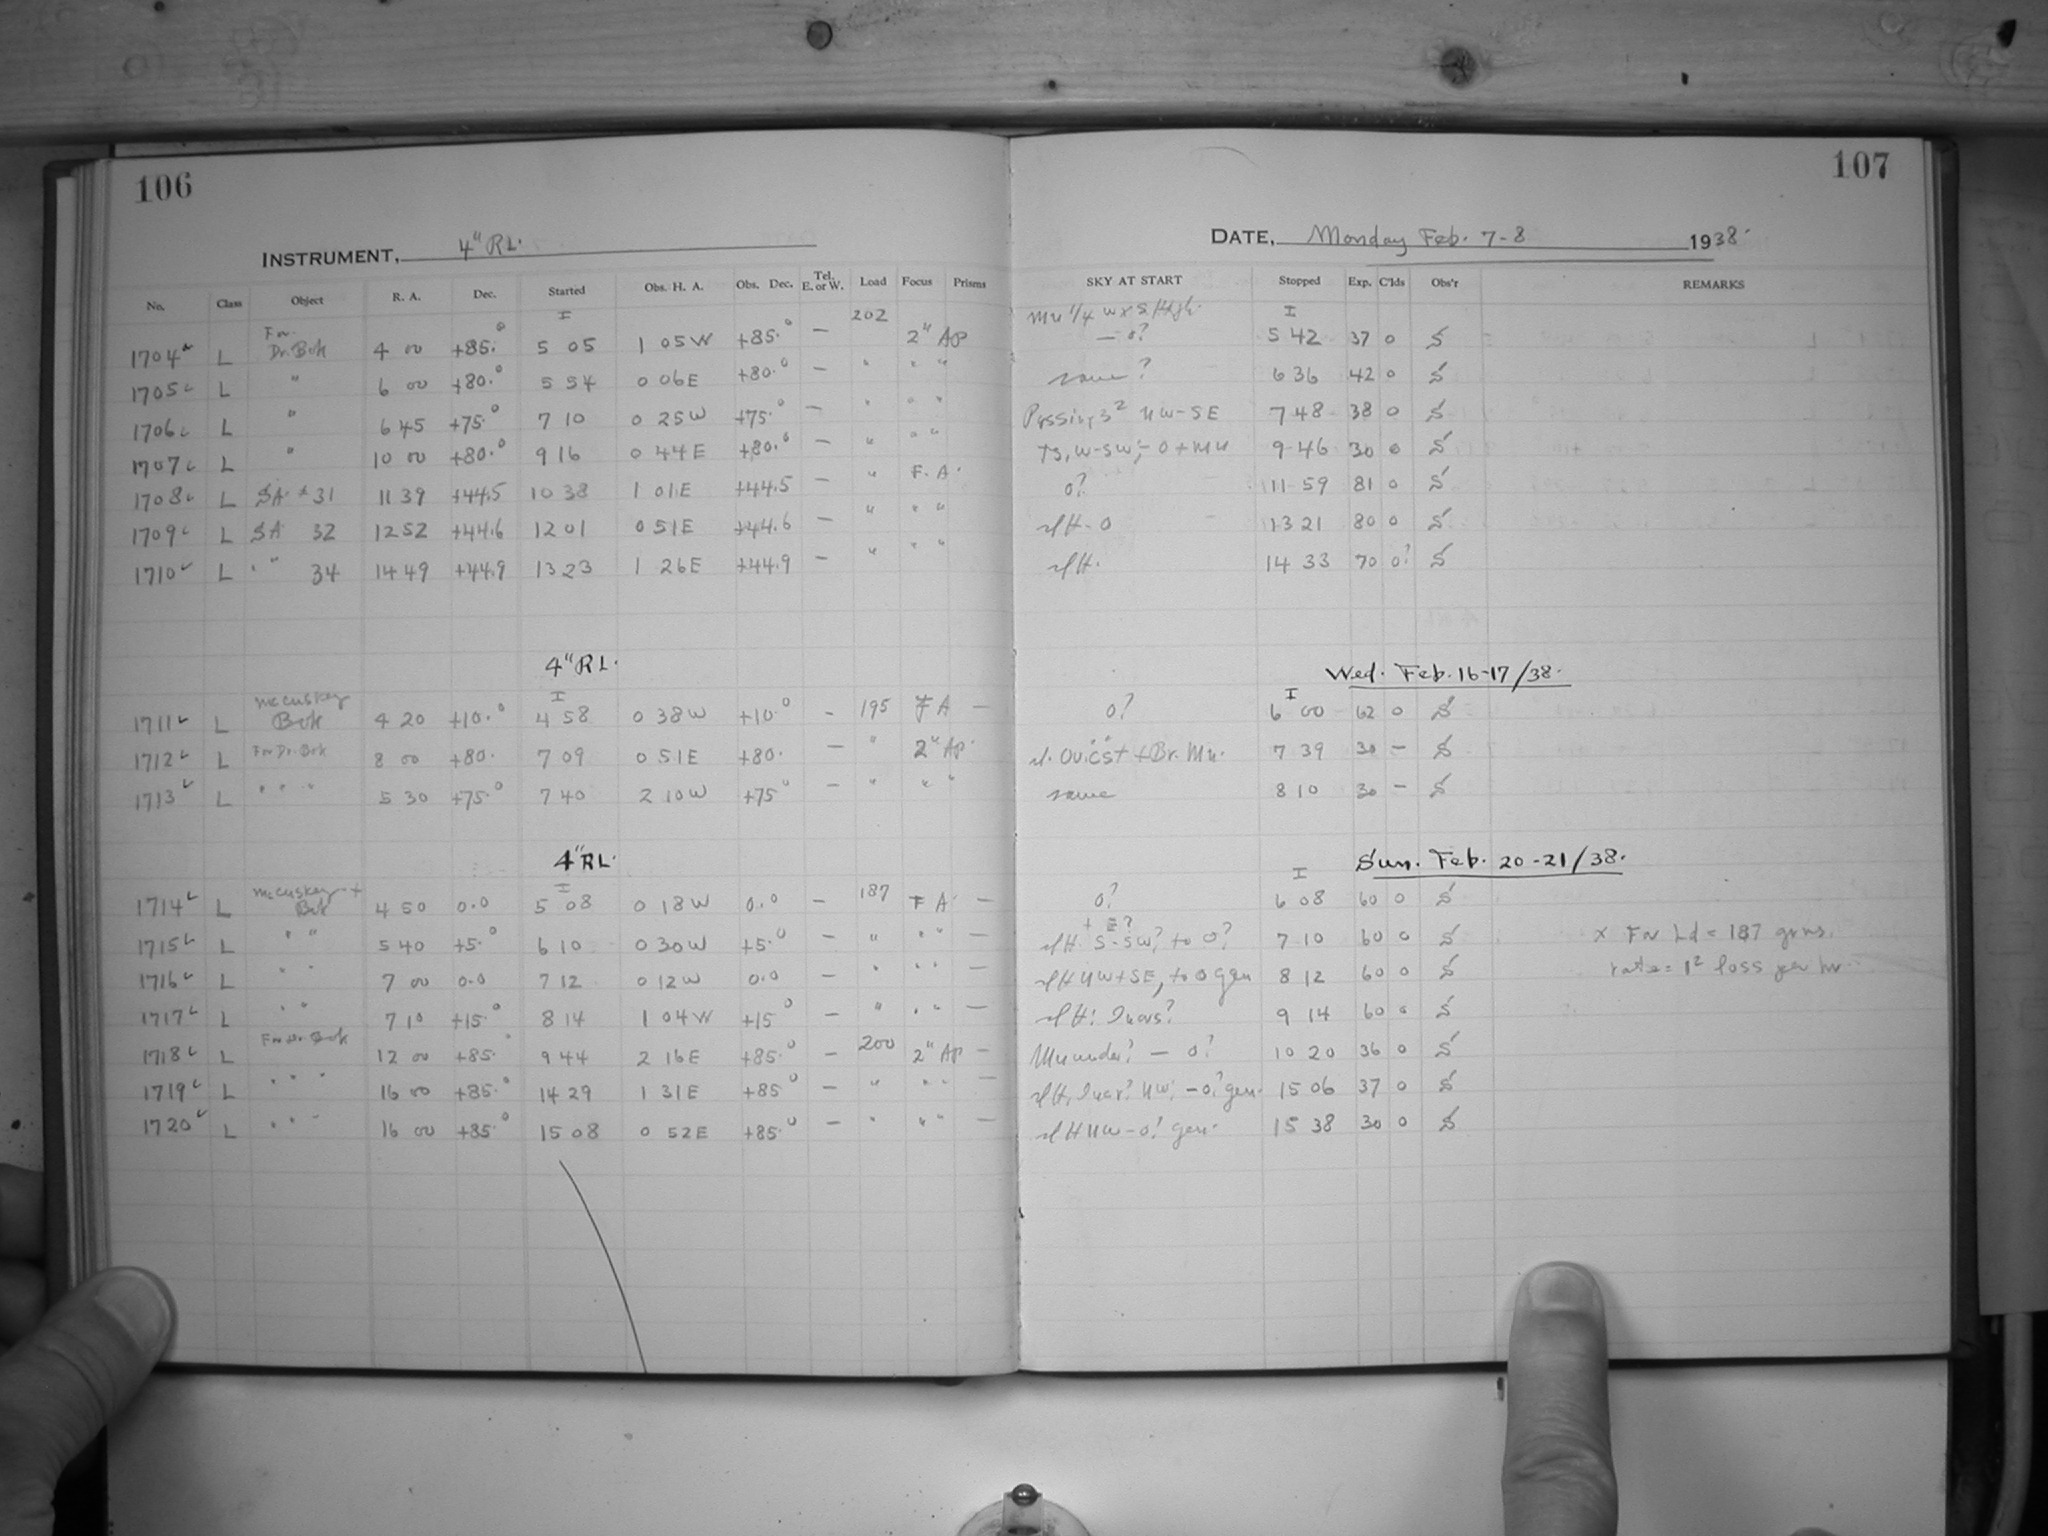 106
INSTRUMENT, 4" RL.
No. Class Object R. A. Dec. Started Obs. H. A. Obs. Dec. Tel. E. or W. Load Focus Prisms
1704 L For Dr. Bok 4 00 +85.° 5 05 1 05 W +85.° — 202 2" Ap
1705 L " 6 00 +80.° 5 54 0 06 E +80.° — " " "
1706 L " 6 45 +75.° 7 10 0 25 W +75.° — " " "
1707 L " 10 00 +80.° 9 16 0 44 E +80.° — " " "
1708 L SA 31 11 39 +44.5 10 38 1 01 E +44.5 — " F. A.
1709 L SA 32 12 52 +44.6 12 01 0 51 E +44.6 — " " "
1710 L " " 34 14 49 +44.9 13 23 1 26 E +44.9 — " " "
4" RL.
1711 L McCuskey Bok 4 20 +10.° 4 58 0 38 W +10.° - 195 F A —
1712 L For Dr. Bok 8 00 +80. 7 09 0 51 E +80. — " 2" Ap.
1713 L " " " 5 30 +75.° 7 40 2 10 W +75° — " " "
4" RL.
1714 L McCuskey + Bok 4 50 0.0 5 08 0 18 W 0.0 — 187 F A —
1715 L " " 5 40 +5.° 6 10 0 30 W +5.° — " " " —
1716 L " " 7 00 0.0 7 12 0 12 W 0.0 — " " " —
1717 L " " 7 10 +15.° 8 14 1 04 W +15° — " " " —
1718 L For Dr. Bok 12 00 +85.° 9 44 2 16 E +85.° — 200 2" Ap —
1719 L " " " 16 00 +85.° 14 29 1 31 E +85° — " " " —
1720 L " " " 16 00 +85.° 15 08 0 52 E +85.° — " " " —
107
DATE, Monday Feb. 7-8 1938.
SKY AT START Stopped Exp. C'lds Obs'r REMARKS
— 0? 5 42 37 0 S
same? 6 36 42 0 S
Passing NW-SE 7 48 38 0 S
9 46 30 0 S
0? 11 59 81 0 S
0 13 21 80 0 S
14 33 70 0? S
Wed. Feb. 16-17/38.
0? 6 00 62 0 S
+ Br. 7 39 30 — S
same 8 10 30 — S
Sun. Feb. 20-21/38.
0? 6 08 60 0 S
S-SW? to 0? 7 10 60 0 S x For Ld = 187 grms.
to 0 gen 8 12 60 0 S rate = 1² loss per hr
9 14 60 0 S
— 0? 10 20 36 0 S
-0? gen. 15 06 37 0 S
-0? gen. 15 38 30 0 S